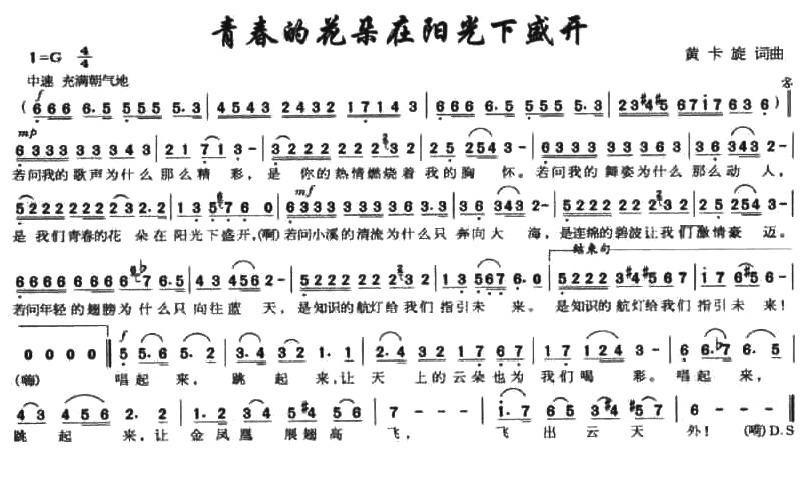 青春的花朵在阳光下盛开
1=G 4/4
黄卡旋 词曲
中速 充满朝气地
f
(666 6.5 555 5.3 | 4543 2432 17143 | 666 6.5 555 5.3 | 23#4#5 67i7 636) ‖
mp
6333 333343 | 217 13 - | 5222 22223 | 25254 3 - | 6333 333333 | 36343 2 -
若问我的歌声为什么那么精彩,是你的热情燃烧着我的胸怀。若问我的舞姿为什么那么动人,
mf
5222222232.2 | 135#676 0 | 6333 333333 | 36343 2 - | 5222 22223 | 25254 3 -
是我们青春的花朵在阳光下盛开,(啊)若问小溪的清流为什么只奔向大海,是连绵的碧波让我们激情豪迈。
结束句
6666 66676.5 | 434562 - | 5222 22223 | 135676.0 | 5222 3#4#567 | i 7 6#56 -
若问年轻的翅膀为什么只向往蓝天,是知识的航灯给我们指引未来。是知识的航灯给我们指引未来!
f
0 0 0 0 ‖ 5 5.6 5.2 | 3.4 32 1.1 | 2 4 32 17 67 | 1 7 124 3 - | 6 6.b7 6.5
(嗨) 唱起来,跳起来,让天上的云朵也为我们喝彩。唱起来,
43 456 2.2 | 1.2 43 5#4 56 | 7 - - | i.7 65 3#4 #57 | 6 - -
跳起来,让金凤凰展翅高飞,飞出云天外!(嗬)D.S